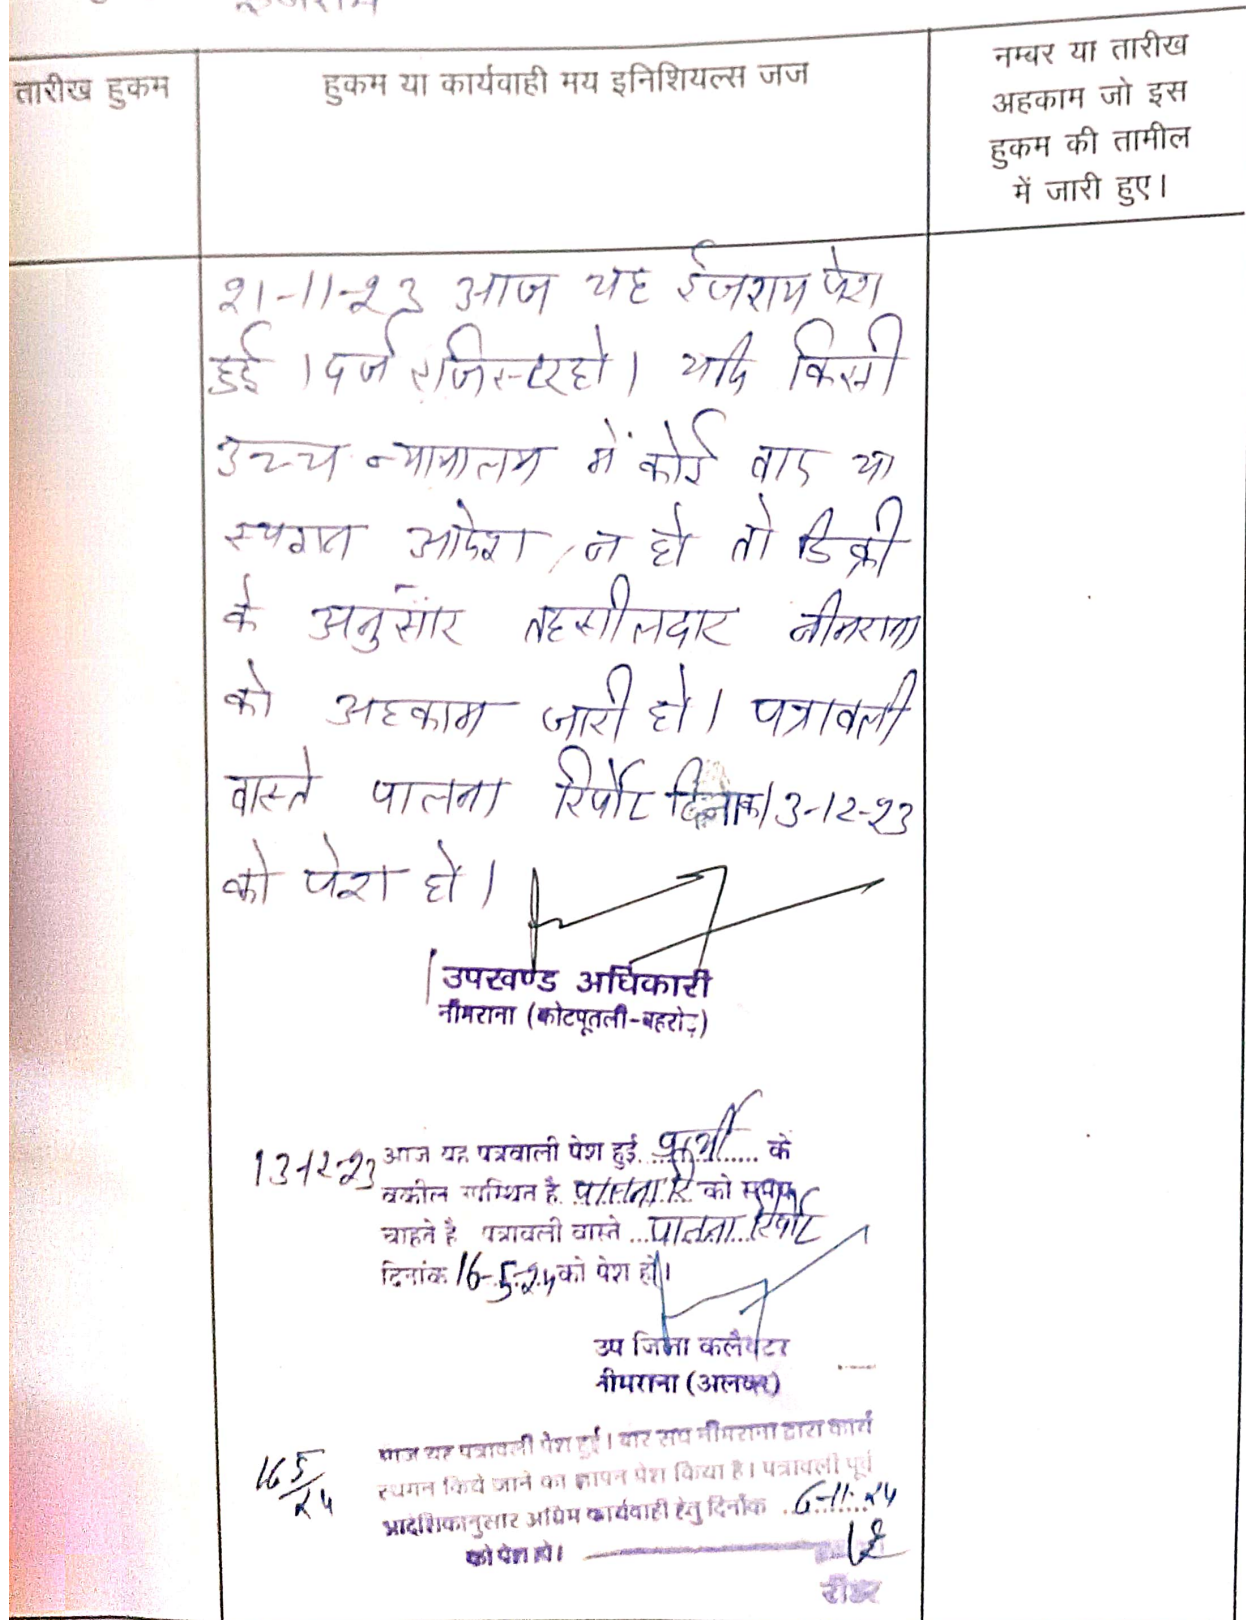 तारीख हुकम
हुकम या कार्यवाही मय इनिशियल्स जज
नम्बर या तारीख
अहकाम जो इस
हुकम की तामील
में जारी हुए।
21-11-23 आज यह ईजराय पेश
हुई । दर्ज रजिस्टर हो। यदि किसी
उच्च न्यायालय में कोई वाद या
स्थगन आदेश न हो तो डिक्री
के अनुसार तहसीलदार नीमराना
को अहकाम जारी हो। पत्रावली
वास्ते पालना रिर्पोट दिनांक 13-12-23
को पेश हो।
उपखण्ड अधिकारी
नीमराना (कोटपूतली-बहरोड़)
13-12-23 आज यह पत्रवाली पेश हुई. प्रार्थी के
वकील उपस्थित है. पालना रि को समय
चाहते है पत्रावली वास्ते ...पालना रिर्पोट
दिनांक 16-5-24 को पेश हो।
उप जिला कलैक्टर
नीमराना (अलवर)
16/5/24 आज यह पत्रावली पेश हुई। बार संघ नीमराना द्वारा कार्य
स्थगन किये जाने का ज्ञापन पेश किया है। पत्रावली पूर्व
आदेशिकानुसार अग्रिम कार्यवाही हेतु दिनांक 6-11-24
को पेश हो।
रीडर